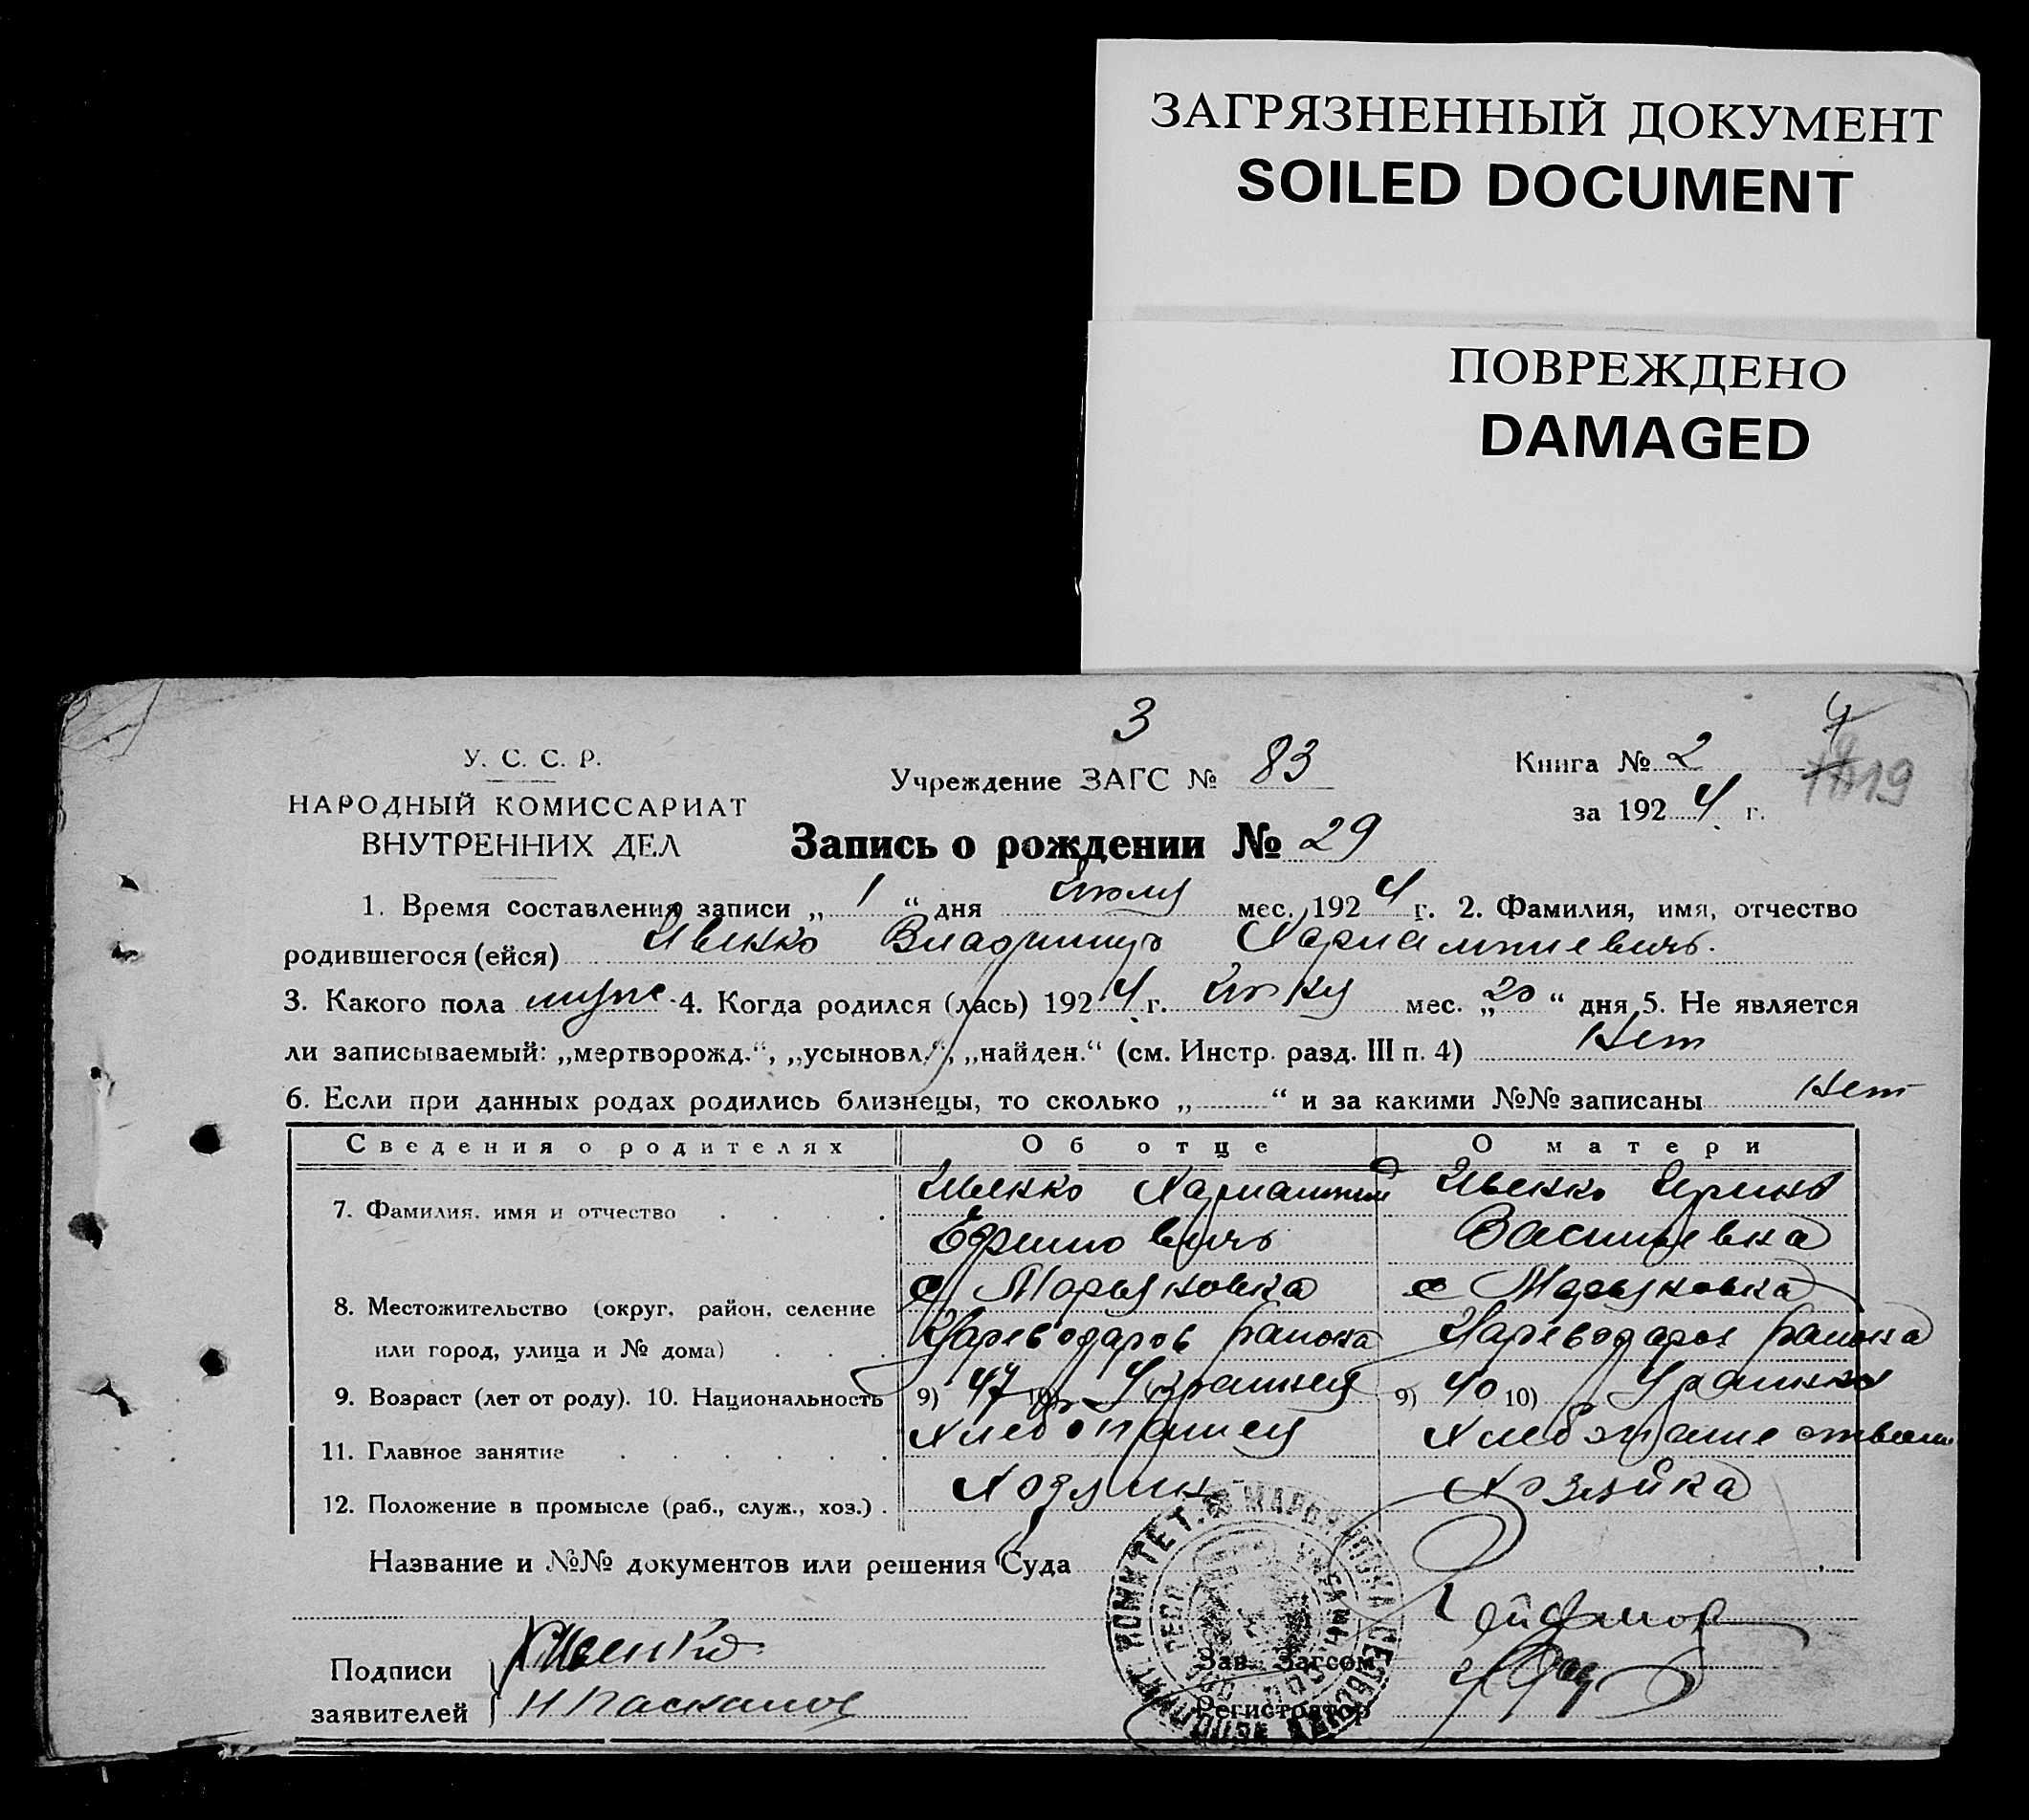 ЗАГРЯЗНЕННЫЙ ДОКУМЕНТ
SOILED DOCUMENT
ПОВРЕЖДЕНО
DAMAGED
3
У. С. С. Р.
НАРОДНЫЙ КОМИССАРИАТ
ВНУТРЕННИХ ДЕЛ
Учреждение ЗАГС № 83
Книга № 2
за 1924 г.
19
Запись о рождении № 29
1. Время составления записи „ 1 “ дня Июля мес. 1924 г. 2. Фамилия, имя, отчество
родившегося (ейся) Ивенко Владимир Харлампиевичъ.
3. Какого пола муже. 4. Когда родился (лась) 1924 г. мес. „ 20 “ дня 5. Не является
ли записываемый: „мертворожд.“, „усыновл.“, „найден.“ (см. Инстр. разд. III п. 4) Нет
6. Если при данных родах родились близнецы, то сколько „ “ и за какими №№ записаны Нет
Сведения о родителях Об отце О матери
7. Фамилия, имя и отчество Ивенко Харлампий Ивенко Ирина
Ефимовичъ Васильевна
8. Местожительство (округ, район, селение с Марьяновка с Марьяновка
или город, улица и № дома) Цареводаров района Цареводаров района
9. Возраст (лет от роду). 10. Национальность 9) 47 10) 9) 40 10)
11. Главное занятие Хлебопашец
12. Положение в промысле (раб., служ., хоз.) Хозяин Хозяйка
Название и №№ документов или решения Суда
Подписи
заявителей
Ивенко
Н Паскалов
Зав. Загсом
Регистратор